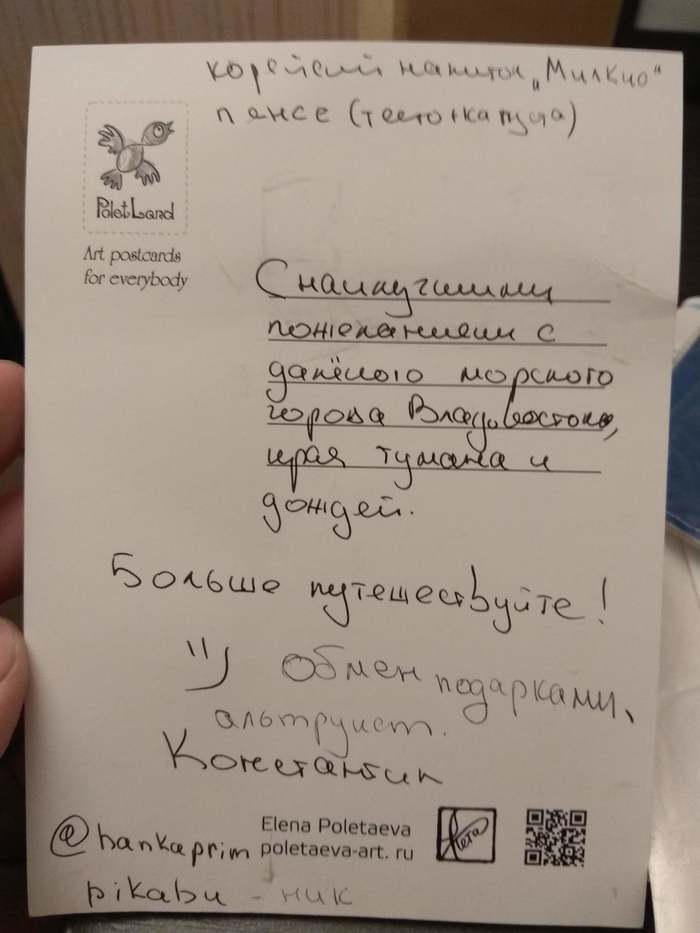 корейский напиток „Милкис“
пянсе (тесто+капуста)
PoletLand
Art postcards
for everybody
С наилучшими
пожеланиями с
далёкого морского
города Владивостока,
края тумана и
дождей.
Больше путешествуйте!
Обмен подарками,
альтруист.
Константин
@hankaprim
Elena Poletaeva
poletaeva-art. ru
pikabu - ник